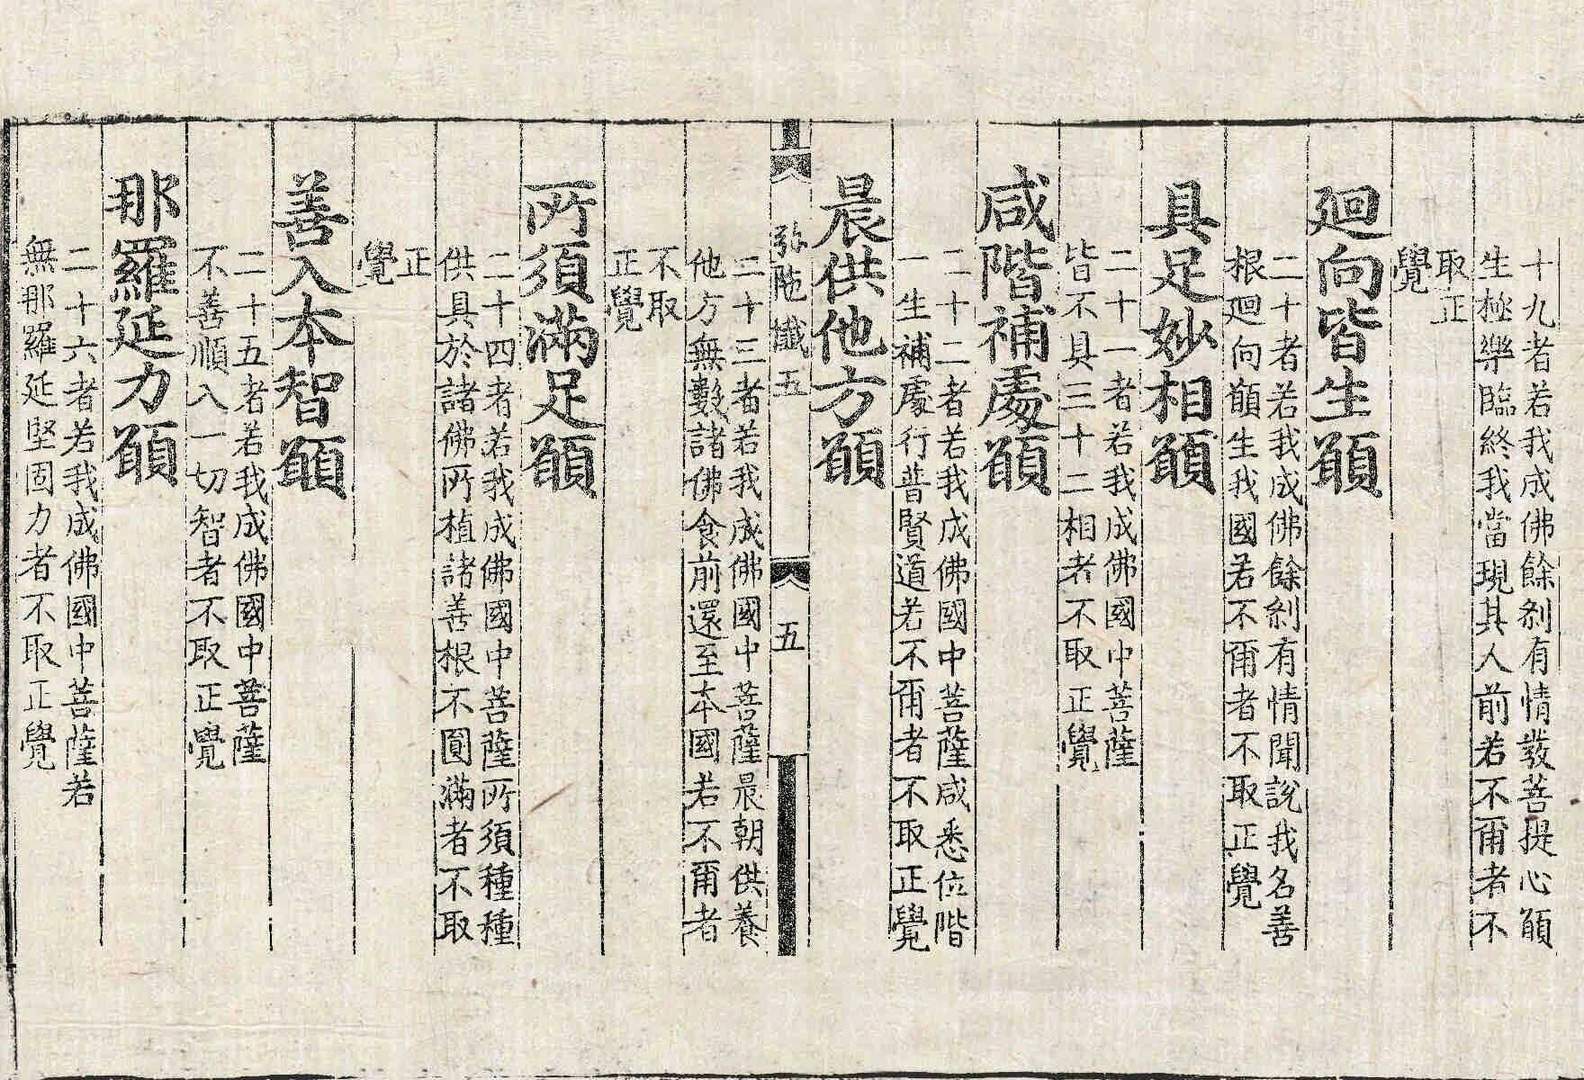 十九者若我成佛餘刹有情發菩提心願
生極樂臨終我當現其人前若不爾者不
取正
覺
廻向皆生願
二十者若我成佛餘刹有情聞說我名善
根廻向願生我國若不爾者不取正覺
具足妙相願
二十一者若我成佛國中菩薩
皆不具三十二相者不取正覺
咸階補處願
二十二者若我成佛國中菩薩咸悉位階
一生補處行普賢道若不爾者不取正覺
晨供他方願
二十三者若我成佛國中菩薩晨朝供養
他方無數諸佛食前還至本國若不爾者
不取
正覺
弥陁懺五
五
所須滿足願
二十四者若我成佛國中菩薩所須種種
供具於諸佛所植諸善根不圓滿者不取
正
覺
善入本智願
二十五者若我成佛國中菩薩
不善順入一切智者不取正覺
那羅延力願
二十六者若我成佛國中菩薩若
無那羅延堅固力者不取正覺